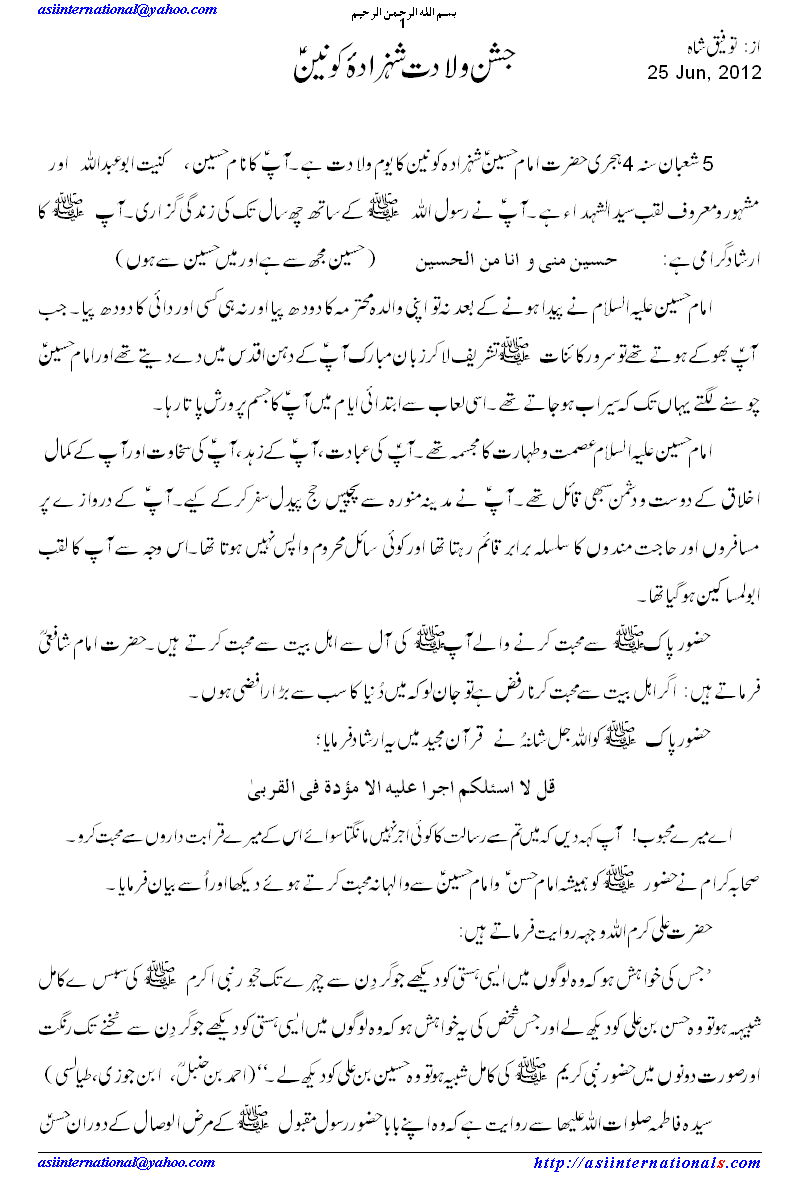 asiinternational@yahoo.com
بسم الله الرحمن الرحيم
1
از: توفیق شاہ
جشن ولادت شہزادۂ کونینؑ
25 Jun, 2012
5 شعبان سنہ 4 ہجری حضرت امام حسینؑ شہزادہ کونین کا یوم ولادت ہے۔ آپؑ کا نام حسین ، کنیت ابو عبداللہ اور
مشہور و معروف لقب سید الشہداء ہے۔ آپؑ نے رسول اللہ ﷺ کے ساتھ چھ سال تک کی زندگی گزاری۔ آپ ﷺ کا
ارشاد گرامی ہے: حسین منی و انا من الحسین (حسین مجھ سے ہے اور میں حسین سے ہوں)
امام حسین علیہ السلام نے پیدا ہونے کے بعد نہ تو اپنی والدہ محترمہ کا دودھ پیا اور نہ ہی کسی اور دائی کا دودھ پیا۔ جب
آپؑ بھوکے ہوتے تھے تو سرور کائنات ﷺ تشریف لا کر زبان مبارک آپؑ کے دہن اقدس میں دے دیتے تھے اور امام حسینؑ
چوسنے لگتے یہاں تک کہ سیراب ہو جاتے تھے۔ اسی لعاب سے ابتدائی ایام میں آپؑ کا جسم پرورش پاتا رہا۔
امام حسین علیہ السلام عصمت و طہارت کا مجسمہ تھے۔ آپؑ کی عبادت، آپؑ کے زہد، آپؑ کی سخاوت اور آپ کے کمال
اخلاق کے دوست و دشمن سبھی قائل تھے۔ آپؑ نے مدینہ منورہ سے پچیس حج پیدل سفر کر کے کیے۔ آپؑ کے دروازے پر
مسافروں اور حاجت مندوں کا سلسلہ برابر قائم رہتا تھا اور کوئی سائل محروم واپس نہیں ہوتا تھا۔ اس وجہ سے آپ کا لقب
ابولمساکین ہو گیا تھا۔
حضور پاک ﷺ سے محبت کرنے والے آپ ﷺ کی آل سے اہل بیت سے محبت کرتے ہیں۔ حضرت امام شافعیؒ
فرماتے ہیں: اگر اہل بیت سے محبت کرنا رفض ہے تو جان لو کہ میں دُنیا کا سب سے بڑا رافضی ہوں۔
حضور پاک ﷺ کو اللہ جل شانہُ نے قرآن مجید میں یہ ارشاد فرمایا؛
قل لا اسئلکم اجرا علیہ الا مؤدۃ فی القربیٰ
اے میرے محبوب! آپ کہہ دیں کہ میں تم سے رسالت کا کوئی اجر نہیں مانگتا سوائے اس کے میرے قرابت داروں سے محبت کرو۔
صحابہ کرام نے حضور ﷺ کو ہمیشہ امام حسنؑ و امام حسینؑ سے والہانہ محبت کرتے ہوئے دیکھا اور اُسے بیان فرمایا۔
حضرت علی کرم اللہ وجہہ روایت فرماتے ہیں:
’جس کی خواہش ہو کہ وہ لوگوں میں ایسی ہستی کو دیکھے جو گردِن سے چہرے تک حجور نبی اکرم ﷺ کی سبس ے کامل
شبیہہ ہو تو وہ حسن بن علی کو دیکھ لے اور جس شخص کی یہ خواہش ہو کہ وہ لوگوں میں ایسی ہستی کو دیکھے جو گردِن سے ٹخنے تک رنگت
اور صورت دونوں میں حضور نبی کریم ﷺ کی کامل شبیہ ہو تو وہ حسین بن علی کو دیکھ لے۔‘‘ (احمد بن حنبلؒ، ابن جوزی، طیالسی)
سیدہ فاطمہ صلوات اللہ علیھا سے روایت ہے کہ وہ اپنے بابا حضور رسول مقبول ﷺ کے مرض الوصال کے دوران حسنؑ
asiinternational@yahoo.com
http://asiinternationals.com